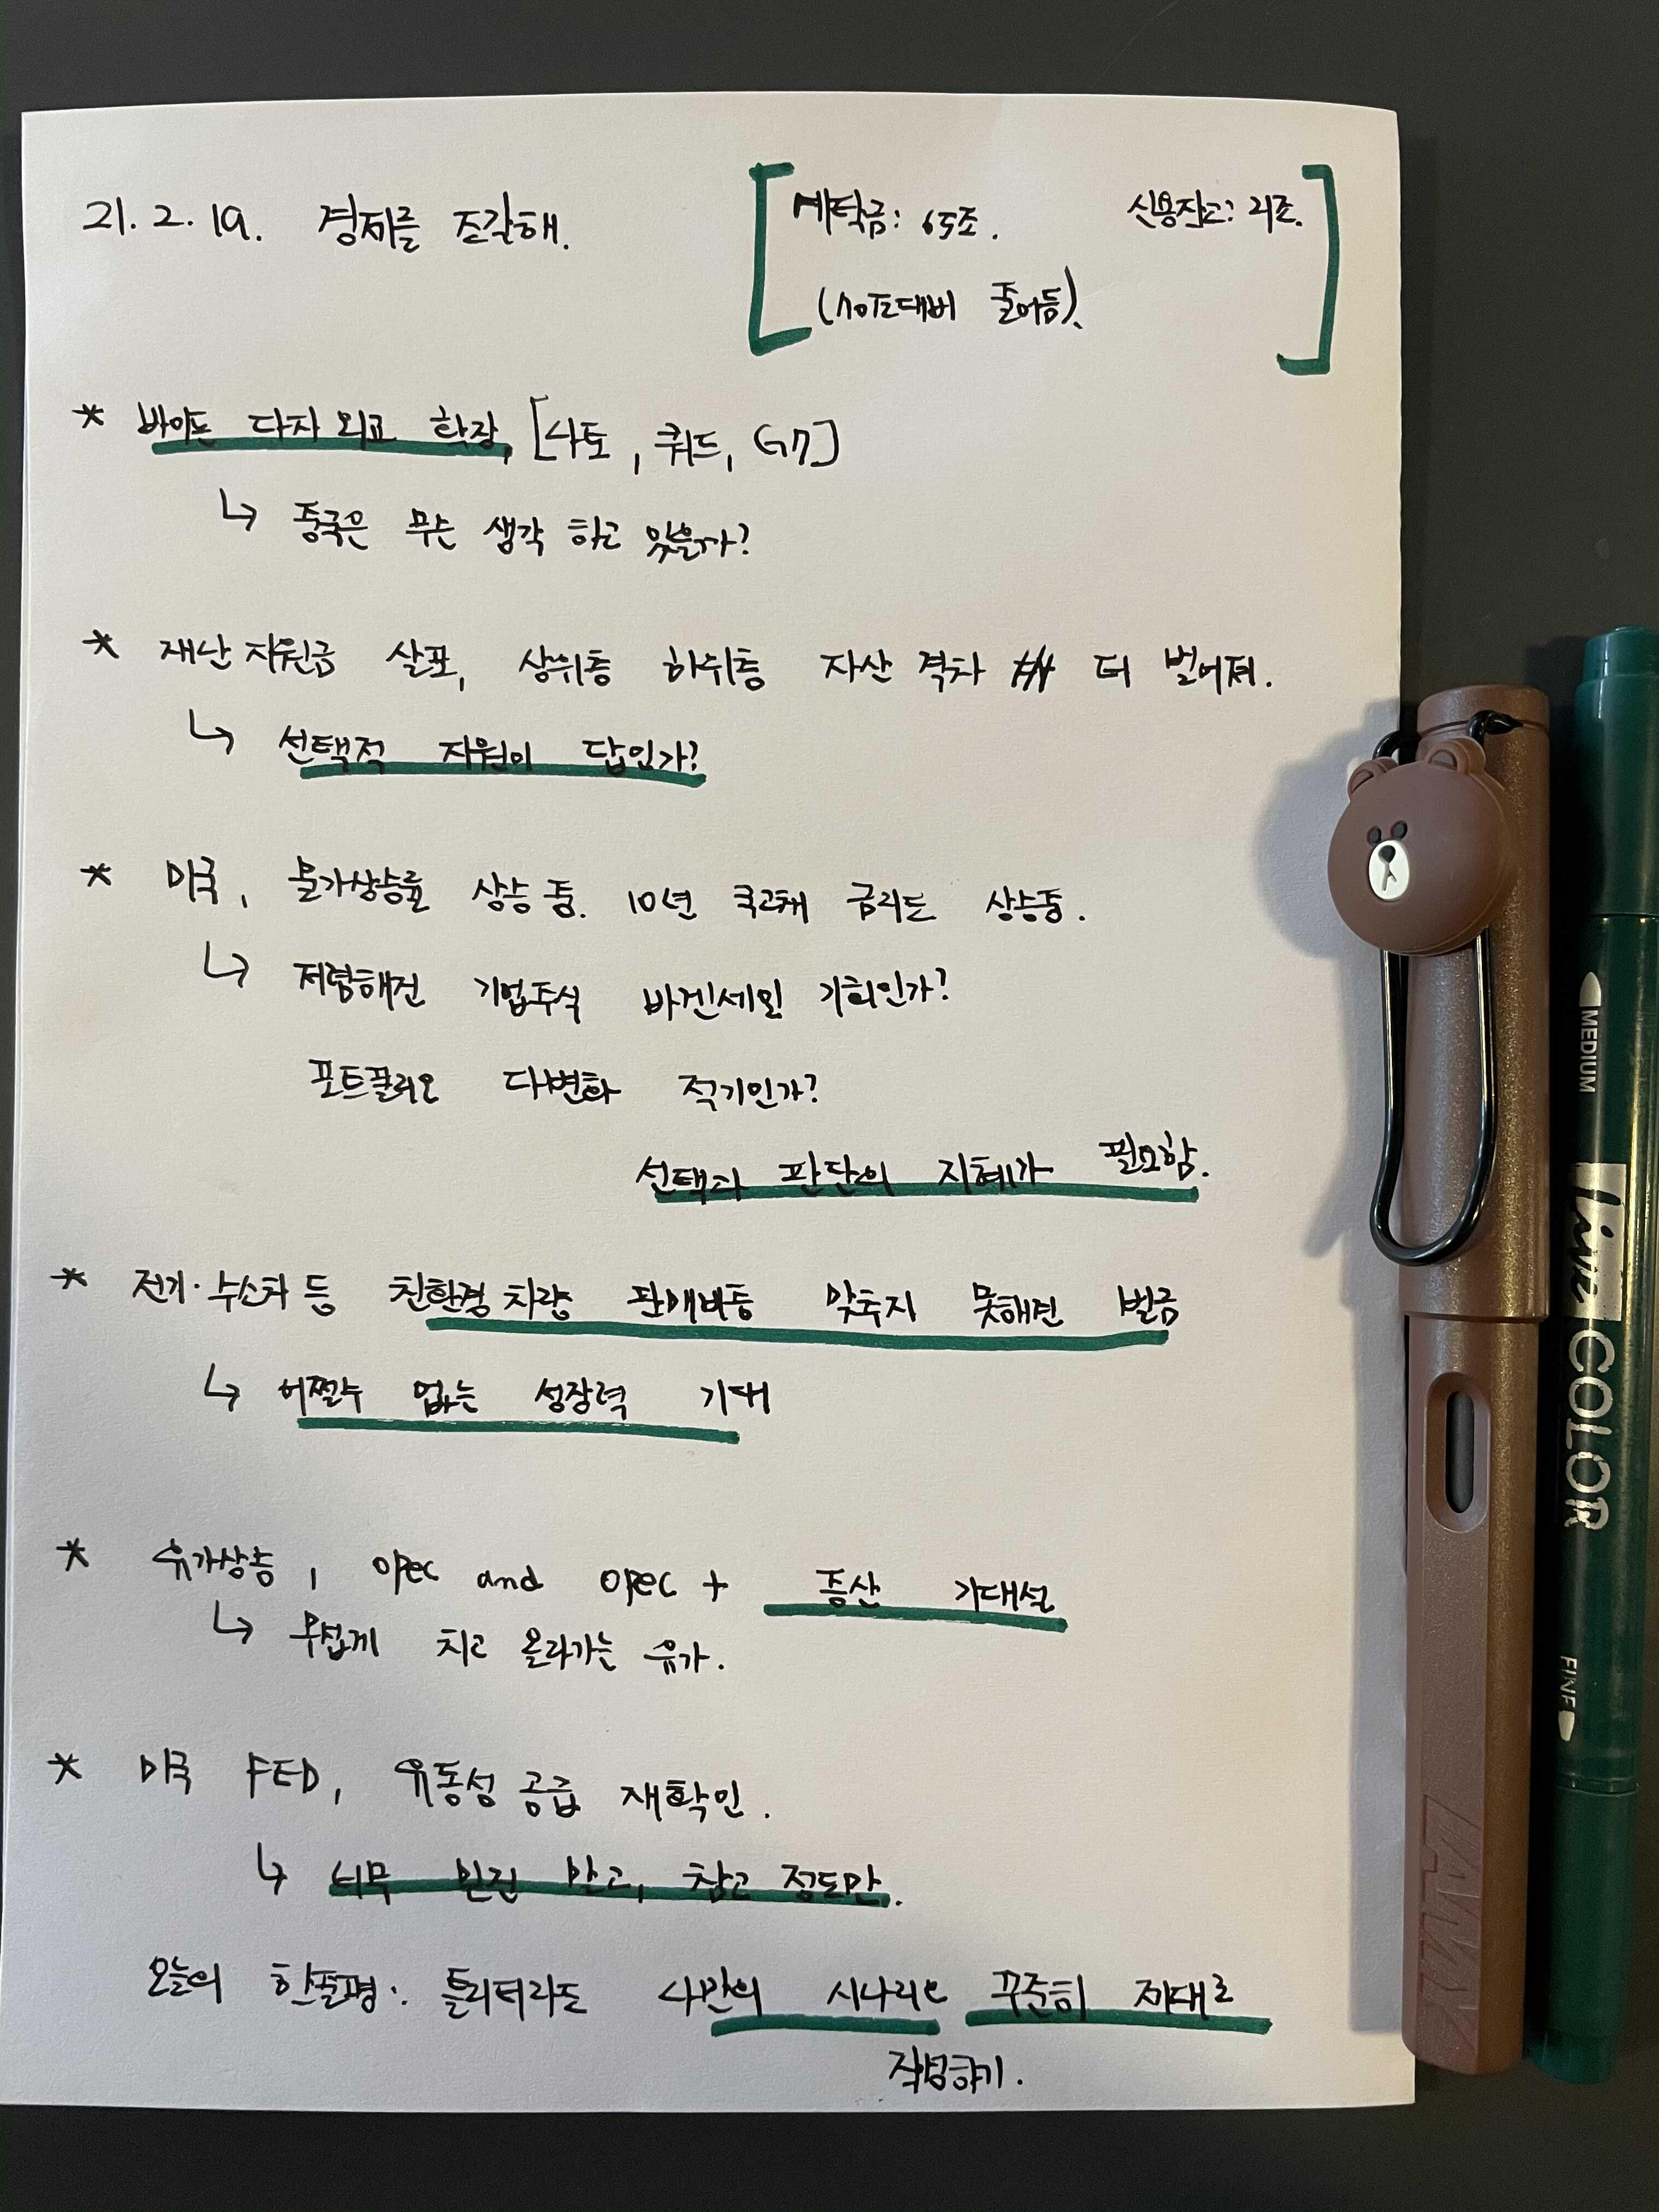 21. 2. 19. 경제를 조각해.
예탁금: 65조. 신용잔고: 21조.
(70조대비 줄어듬).
* 바이든 다자 외교 확장, [나토, 쿼드, G7]
↳ 중국은 무슨 생각 하고 있을까?
* 재난지원금 살포, 상위층 하위층 자산 격차 더 벌어져.
↳ 선택적 지원이 답인가?
* 미국, 물가상승률 상승 중. 10년 국고채 금리도 상승중.
↳ 저렴해진 기업주식 바겐세일 기회인가?
포트폴리오 다변화 적기인가?
선택과 판단의 지혜가 필요함.
* 전기·수소차 등 친환경 차량 판매비중 맞추지 못해면 벌금
↳ 어쩔수 없는 성장력 기대
* 유가상승, opec and opec + 증산 기대설
↳ 무섭게 치고 올라가는 유가.
* 미국 FED, 유동성 공급 재확인.
↳ 너무 믿진 말고, 참고 정도만.
오늘의 한줄평: 틀리더라도 나만의 시나리오 꾸준히 제대로
작성하기.
MEDIUM
Live COLOR
FINE
LAMY